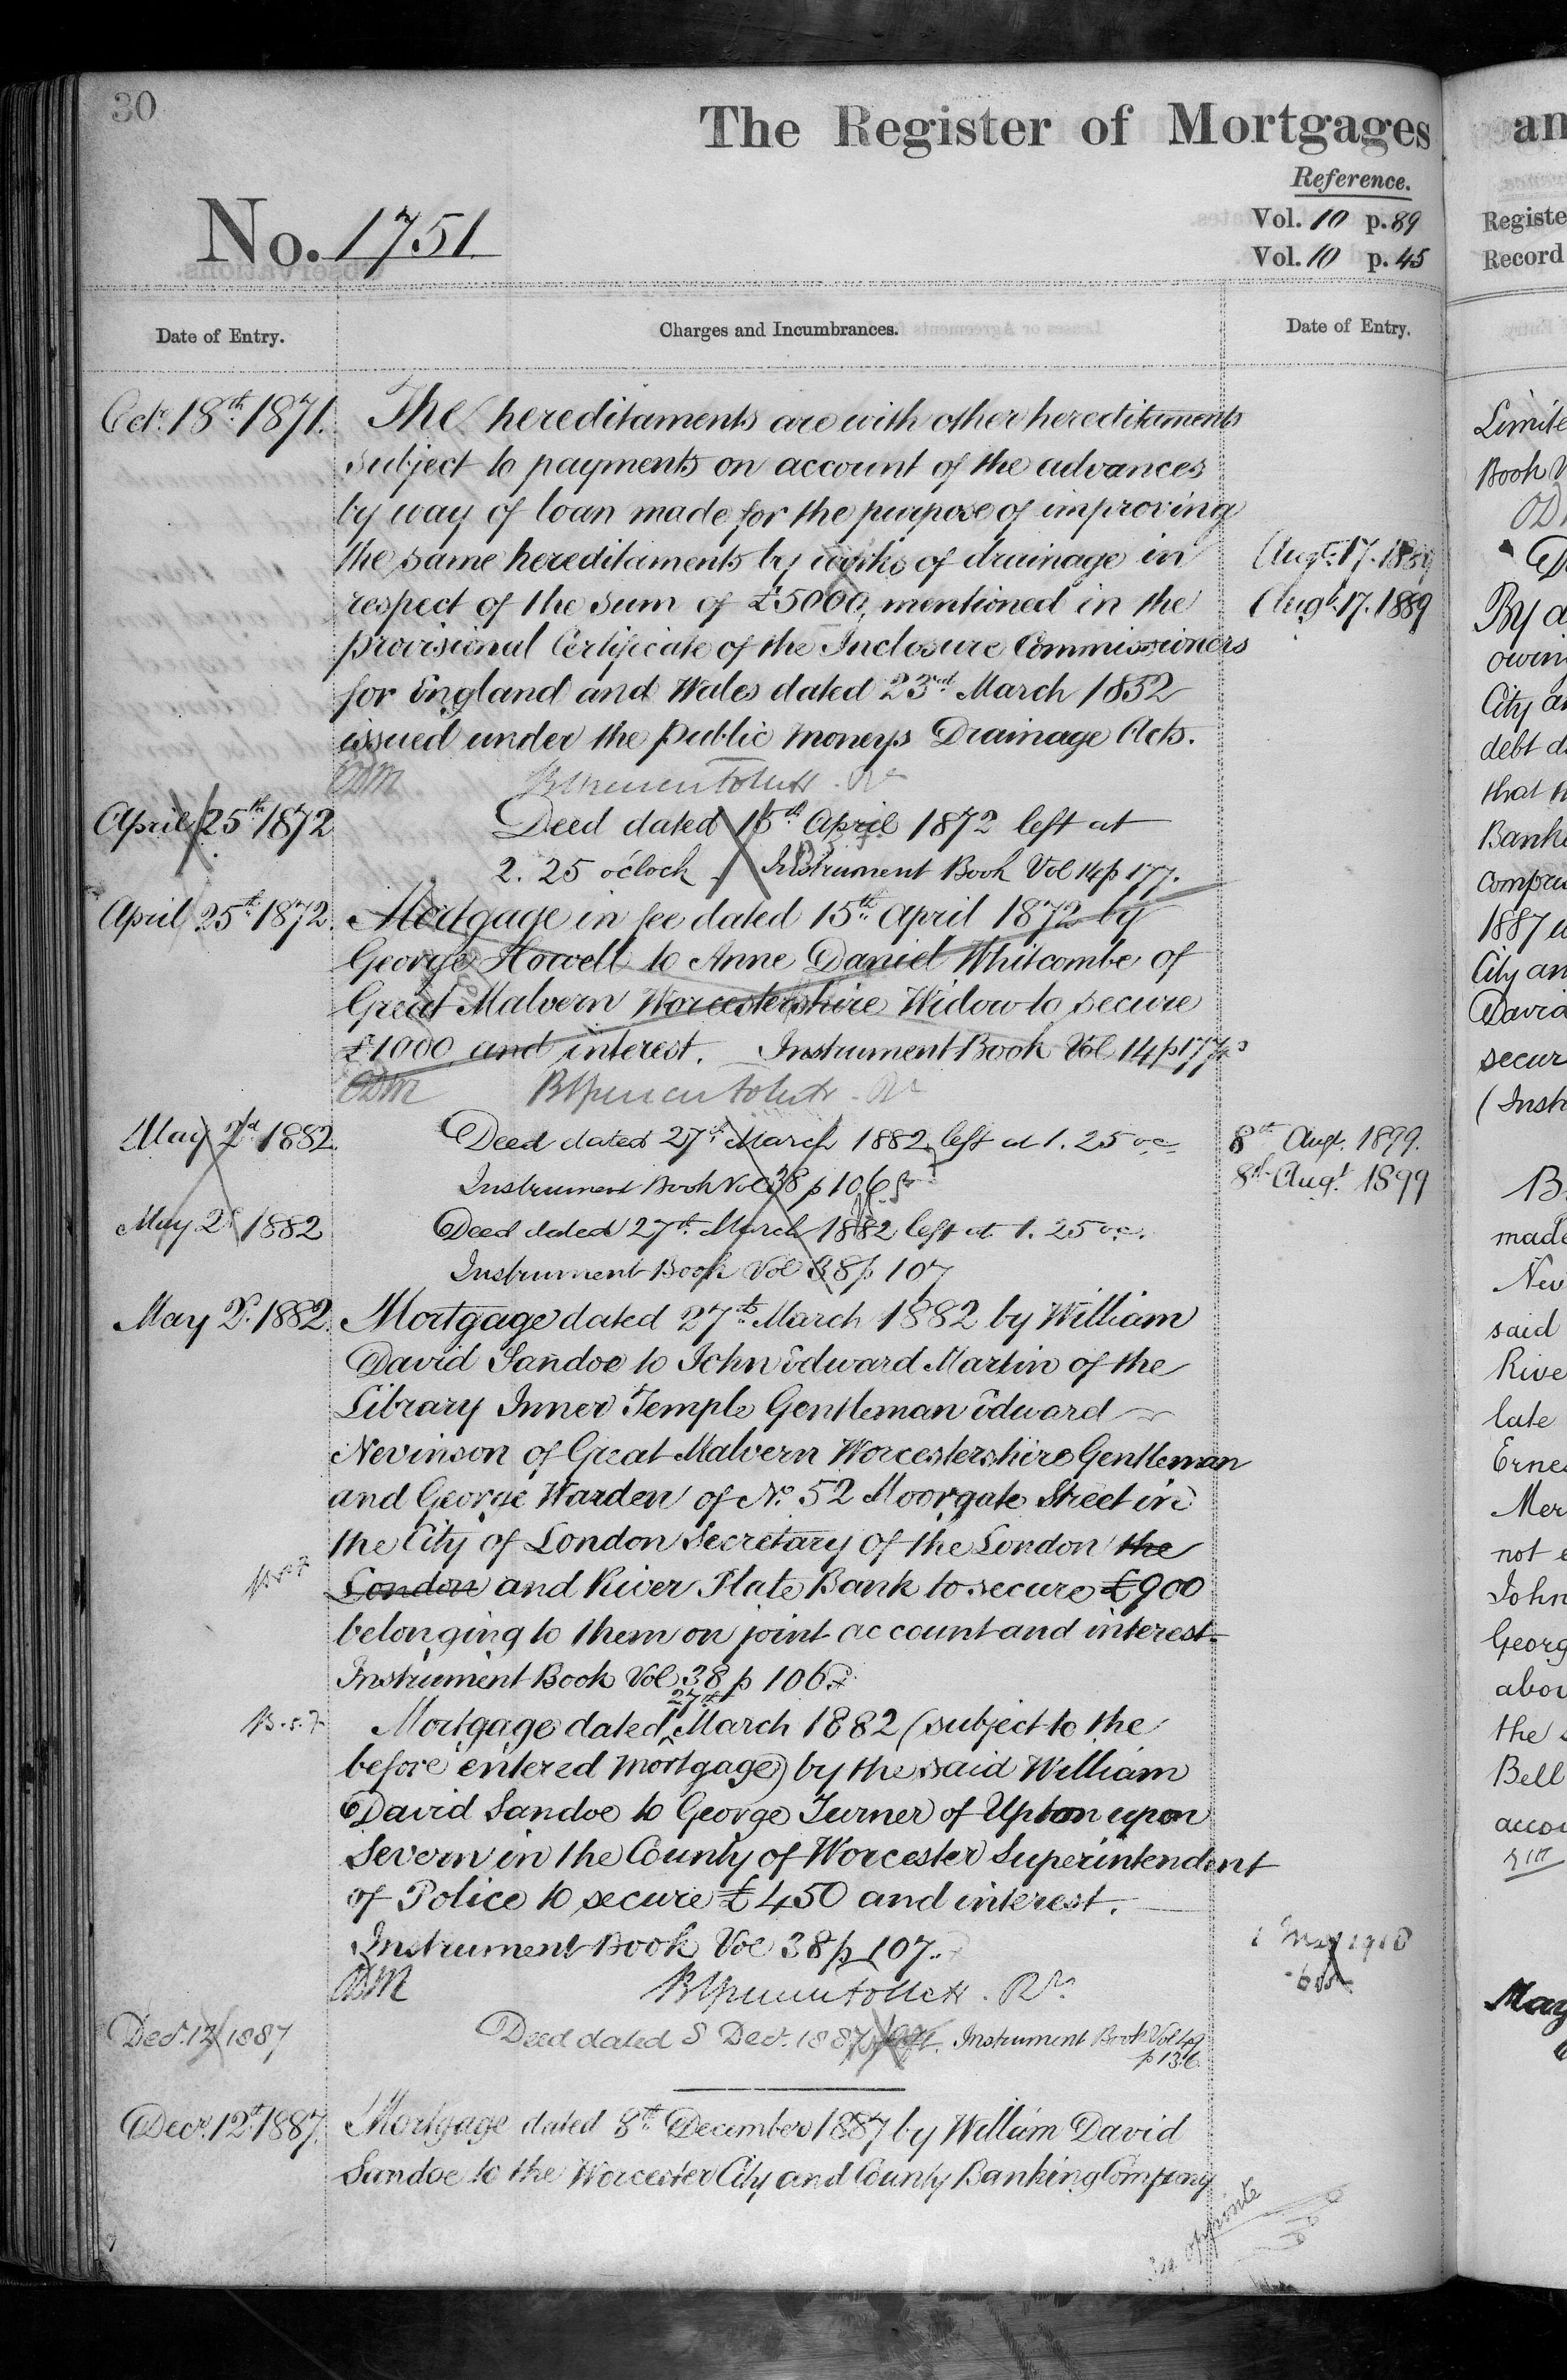 30
The Register of Mortgages
Reference.
No. 1751.
Vol. 10 p. 89
Vol. 10 p. 45
Date of Entry.
Charges and Incumbrances.
Date of Entry.
Octr. 18th 1871. The hereditaments are with other hereditaments
subject to payments on account of the advances
by way of loan made for the purpose of improving
the same hereditaments by works of drainage in
respect of the sum of £5000, mentioned in the
provisional Certificate of the Inclosure Commissioners
for England and Wales dated 23rd March 1852
issued under the public moneys Drainage Acts.
ADM
April 25th 1872 Deed dated 15th April 1872 left at
2. 25 o'clock. Instrument Book Vol 14 p 177.
April 25th 1872. Mortgage in fee dated 15th April 1872 by
George Howell to Anne Daniel Whitcombe of
Great Malvern Worcestershire Widow to secure
£1000 and interest. Instrument Book Vol 14 p 177
ADM
May 2nd 1882. Deed dated 27th March 1882 left at 1. 25 oc
Instrument Book Vol 38 p 106
May 2d 1882 Deed dated 27th March 1882 left at 1. 25 oc.
Instrument Book Vol 38 p 107
May 2d. 1882. Mortgage dated 27th March 1882 by William
David Sandoe to John Edward Martin of the
Library Inner Temple Gentleman Edward
Nevinson of Great Malvern Worcestershire Gentleman
and George Warden of No. 52 Moorgate Street in
the City of London Secretary of the London the
London and River Plate Bank to secure £900
belonging to them on joint account and interest
Instrument Book Vol 38 p 106
27th
B.s.7 Mortgage dated March 1882 (subject to the
before entered mortgage) by the said William
David Sandoe to George Turner of Upton upon
Severn in the County of Worcester Superintendent
of Police to secure £450 and interest.
Instrument Book Vol 38 p 107.
ADM
Decr. 12 1887 Deed dated 8 Decr. 1887 left. Instrument Book Vol 49
p 136
Decr. 12th 1887. Mortgage dated 8th December 1887 by William David
Sandoe to the Worcester City and County Banking Company
opposite
Augt. 17. 1889
Augt. 17. 1889
8th Augt. 1899.
8th Augt. 1899
May 1918
an
Registe
Record
Limite
Book V
By a
owin
City a
debt d
that
Bank
compri
1887
City an
David
secur
(Inst
B
made
Nev
said
Rive
late
Ernes
Mer
not e
John
Georg
abov
the
Bell
accou
May